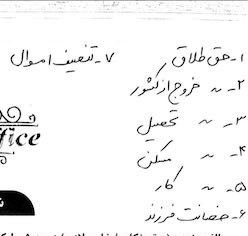 ۱- حق طلاق
۲- ~ خروج از کشور
۳- ~ تحصیل
۴- ~ مسکن
۵- ~ کار
۶- حضانت فرزند
۷- تنصیف اموال
ffice